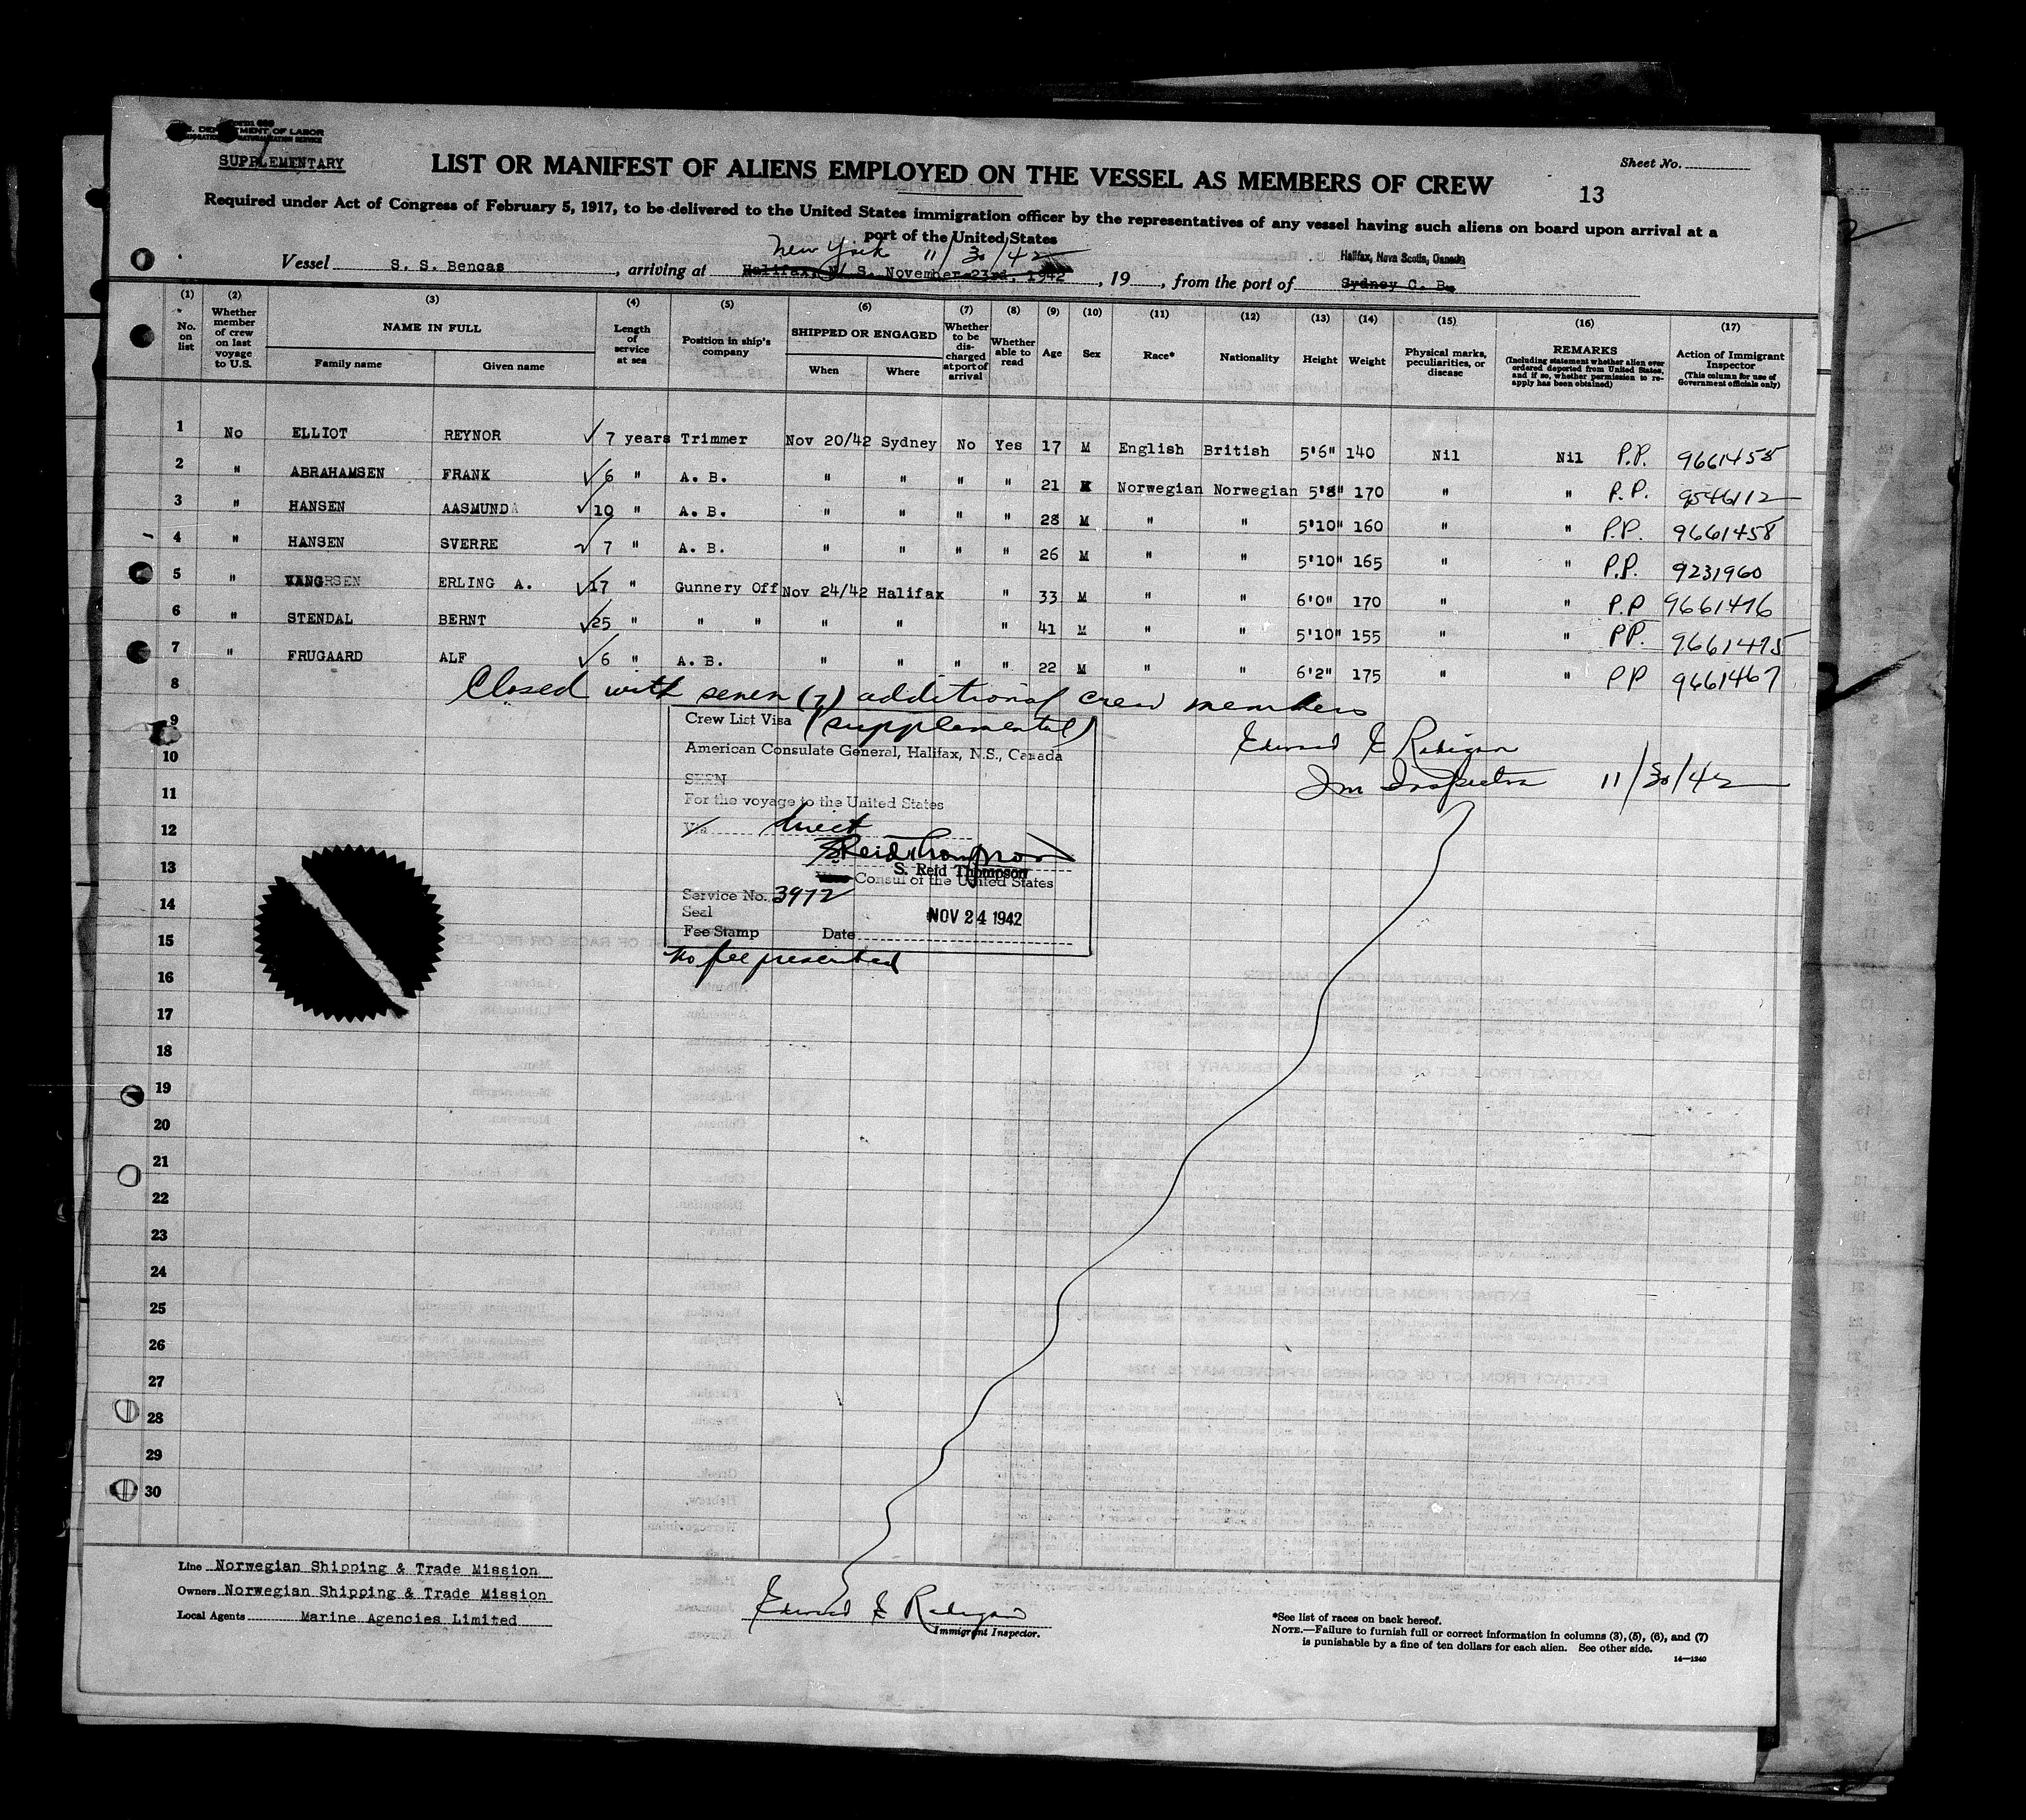 SUPPLEMENTARY
LIST OR MANIFEST OF ALIENS EMPLOYED ON THE VESSEL AS MEMBERS OF CREW
Sheet No.
13
Required under Act of Congress of February 5, 1917, to be delivered to the United States immigration officer by the representatives of any vessel having such aliens on board upon arrival at a
port of the United States
New York 11/30/42
Halifax, Nova Scotia, Canada
Vessel S. S. Bencas, arriving at Halifax, N. S. November 23rd, 1942, 19, from the port of Sydney C. B.
(1) (2) (3) (4) (5) (6) (7) (8) (9) (10) (11) (12) (13) (14) (15) (16) (17)
No. on list
Whether member of crew on last voyage to U.S.
NAME IN FULL
Family name Given name
Length of service at sea
Position in ship's company
SHIPPED OR ENGAGED
When Where
Whether to be discharged at port of arrival
Whether able to read
Age
Sex
Race*
Nationality
Height
Weight
Physical marks, peculiarities, or disease
REMARKS
(Including statement whether alien ever ordered deported from United States, and if so, whether permission to reapply has been obtained)
Action of Immigrant Inspector
(This column for use of Government officials only)
1 No ELLIOT REYNOR 7 years Trimmer Nov 20/42 Sydney No Yes 17 M English British 5'6" 140 Nil Nil P.P. 9661455
2 " ABRAHAMSEN FRANK 6 " A. B. " " " " 21 M Norwegian Norwegian 5'8" 170 " " P.P. 9546112
3 " HANSEN AASMUND 10 " A. B. " " " " 28 M " " 5'10" 160 " " P.P. 9661458
4 " HANSEN SVERRE 7 " A. B. " " " " 26 M " " 5'10" 165 " " P.P. 9231960
5 " ERLING A. 17 " Gunnery Off Nov 24/42 Halifax " 33 M " " 6'0" 170 " " P.P 9661476
6 " STENDAL BERNT 25 " " " " " " 41 M " " 5'10" 155 " " PP. 9661475
7 " FRUGAARD ALF 6 " A. B. " " " " 22 M " " 6'2" 175 " " PP 9661467
8
Closed with seven (7) additional crew members
9
Crew List Visa (supplemental)
Edward E Radigan
10
American Consulate General, Halifax, N.S., Canada
Im Inspector 11/30/42
SEEN
11
For the voyage to the United States
12
Via direct
S Reid Thompson
13
S. Reid Thompson
Consul of the United States
14
Service No. 3972
Seal
NOV 24 1942
15
Fee Stamp Date
No fee presented
16
17
18
19
20
21
22
23
24
25
26
27
28
29
30
Line Norwegian Shipping & Trade Mission
Owners Norwegian Shipping & Trade Mission
Local Agents Marine Agencies Limited
Edward E Radigan
Immigrant Inspector.
*See list of races on back hereof.
NOTE.—Failure to furnish full or correct information in columns (3), (5), (6), and (7)
is punishable by a fine of ten dollars for each alien. See other side.
14—1240